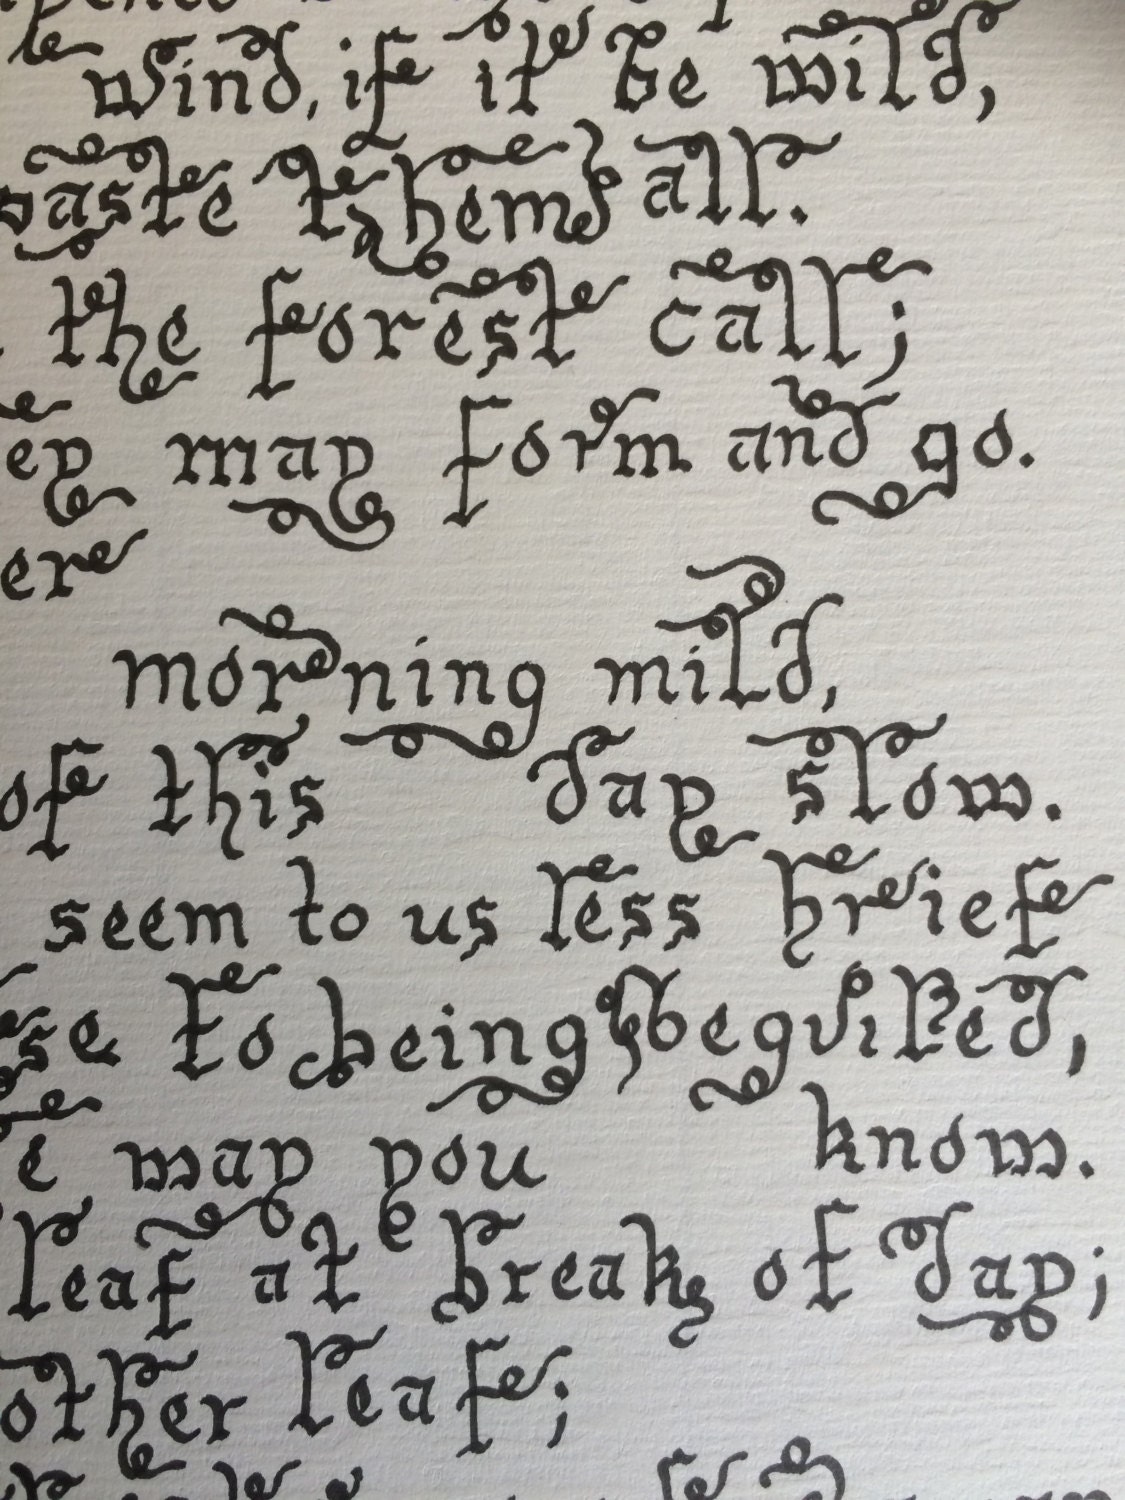 wind, if it be wild,
waste them all.
the forest call;
may form and go.
morning mild,
of this day slow.
seem to us less brief
to being beguiled,
may you know.
leaf at break of day;
other leaf;